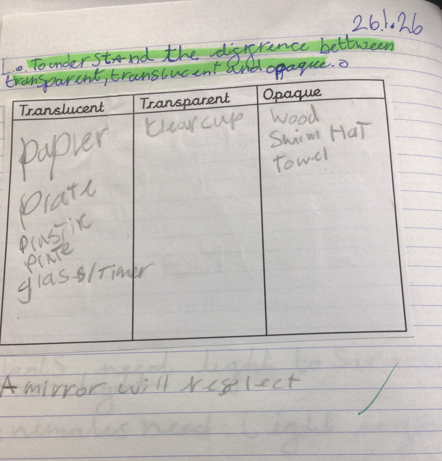 26.1.26
L.o. To understand the digrence bettween
transparent, translucent and opaque. o
Translucent Transparent Opaque
papier clear cup wood
Swim HaT
Towel
plate
plastik
plate
glass/Timer
A mirror will reglect